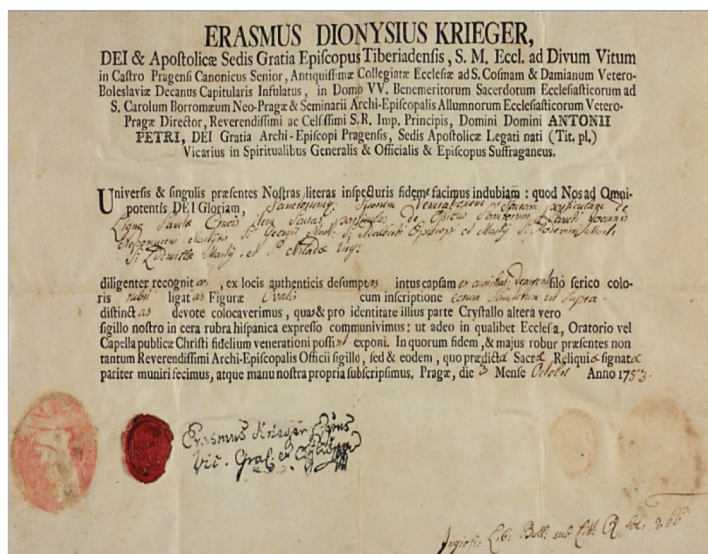 ERASMUS DIONYSIUS KRIEGER,
DEI & Apoſtolicæ Sedis Gratia Epiſcopus Tiberiadenſis, S. M. Eccl. ad Divum Vitum
in Caſtro Pragenſi Canonicus Senior, Antiquiſſimæ Collegiatæ Eccleſiæ ad S. Coſmam & Damianum Vetero-
Boleslaviæ Decanus Capitularis Infulatus, in Domo VV. Benemeritorum Sacerdotum Eccleſiaſticorum ad
S. Carolum Borromæum Neo-Pragæ & Seminarii Archi-Epiſcopalis Allumnorum Eccleſiaſticorum Vetero-
Pragæ Director, Reverendiſſimi ac Celſiſſimi S. R. Imp. Principis, Domini Domini ANTONII
PETRI, DEI Gratia Archi-Epiſcopi Pragenſis, Sedis Apoſtolicæ Legati nati (Tit. pl.)
Vicarius in Spiritualibus Generalis & Officialis & Epiſcopus Suffraganeus.
Univerſis & ſingulis præſentes Noſtras literas inſpecturis fidem facimus indubiam: quod Nos ad Omni-
potentis DEI Gloriam, Sanctorumq; Suorum Venerationem Sacram particulam de
Ligno Sanctæ Crucis item Sacras particulas de Ossibus Sanctorum Sancti Joannis
Nepomuceni Martyris S. Georgii
S. Ludmillæ Martyris et
diligenter recognitas, ex locis authenticis deſumptas intus capſam filo ſerico colo-
ris rubri ligatas Figuræ Ovalis cum inſcriptione eorum Sanctorum ut supra
diſtinctas devote colocaverimus, quas & pro identitate illius parte Cryſtallo altera vero
ſigillo noſtro in cera rubra hiſpanica expreſſo communivimus: ut adeo in qualibet Eccleſia, Oratorio vel
Capella publicæ Chriſti fidelium venerationi poſſint exponi. In quorum fidem, & majus robur præſentes non
tantum Reverendiſſimi Archi-Epiſcopalis Officii ſigillo, ſed & eodem, quo prædictæ Sacræ Reliquiæ ſignatæ
pariter muniri fecimus, atque manu noſtra propria ſubſcripſimus. Pragæ, die 3 Menſe Octobris Anno 1753.
Erasmus Krieger Eppus
Vic. Gralis et